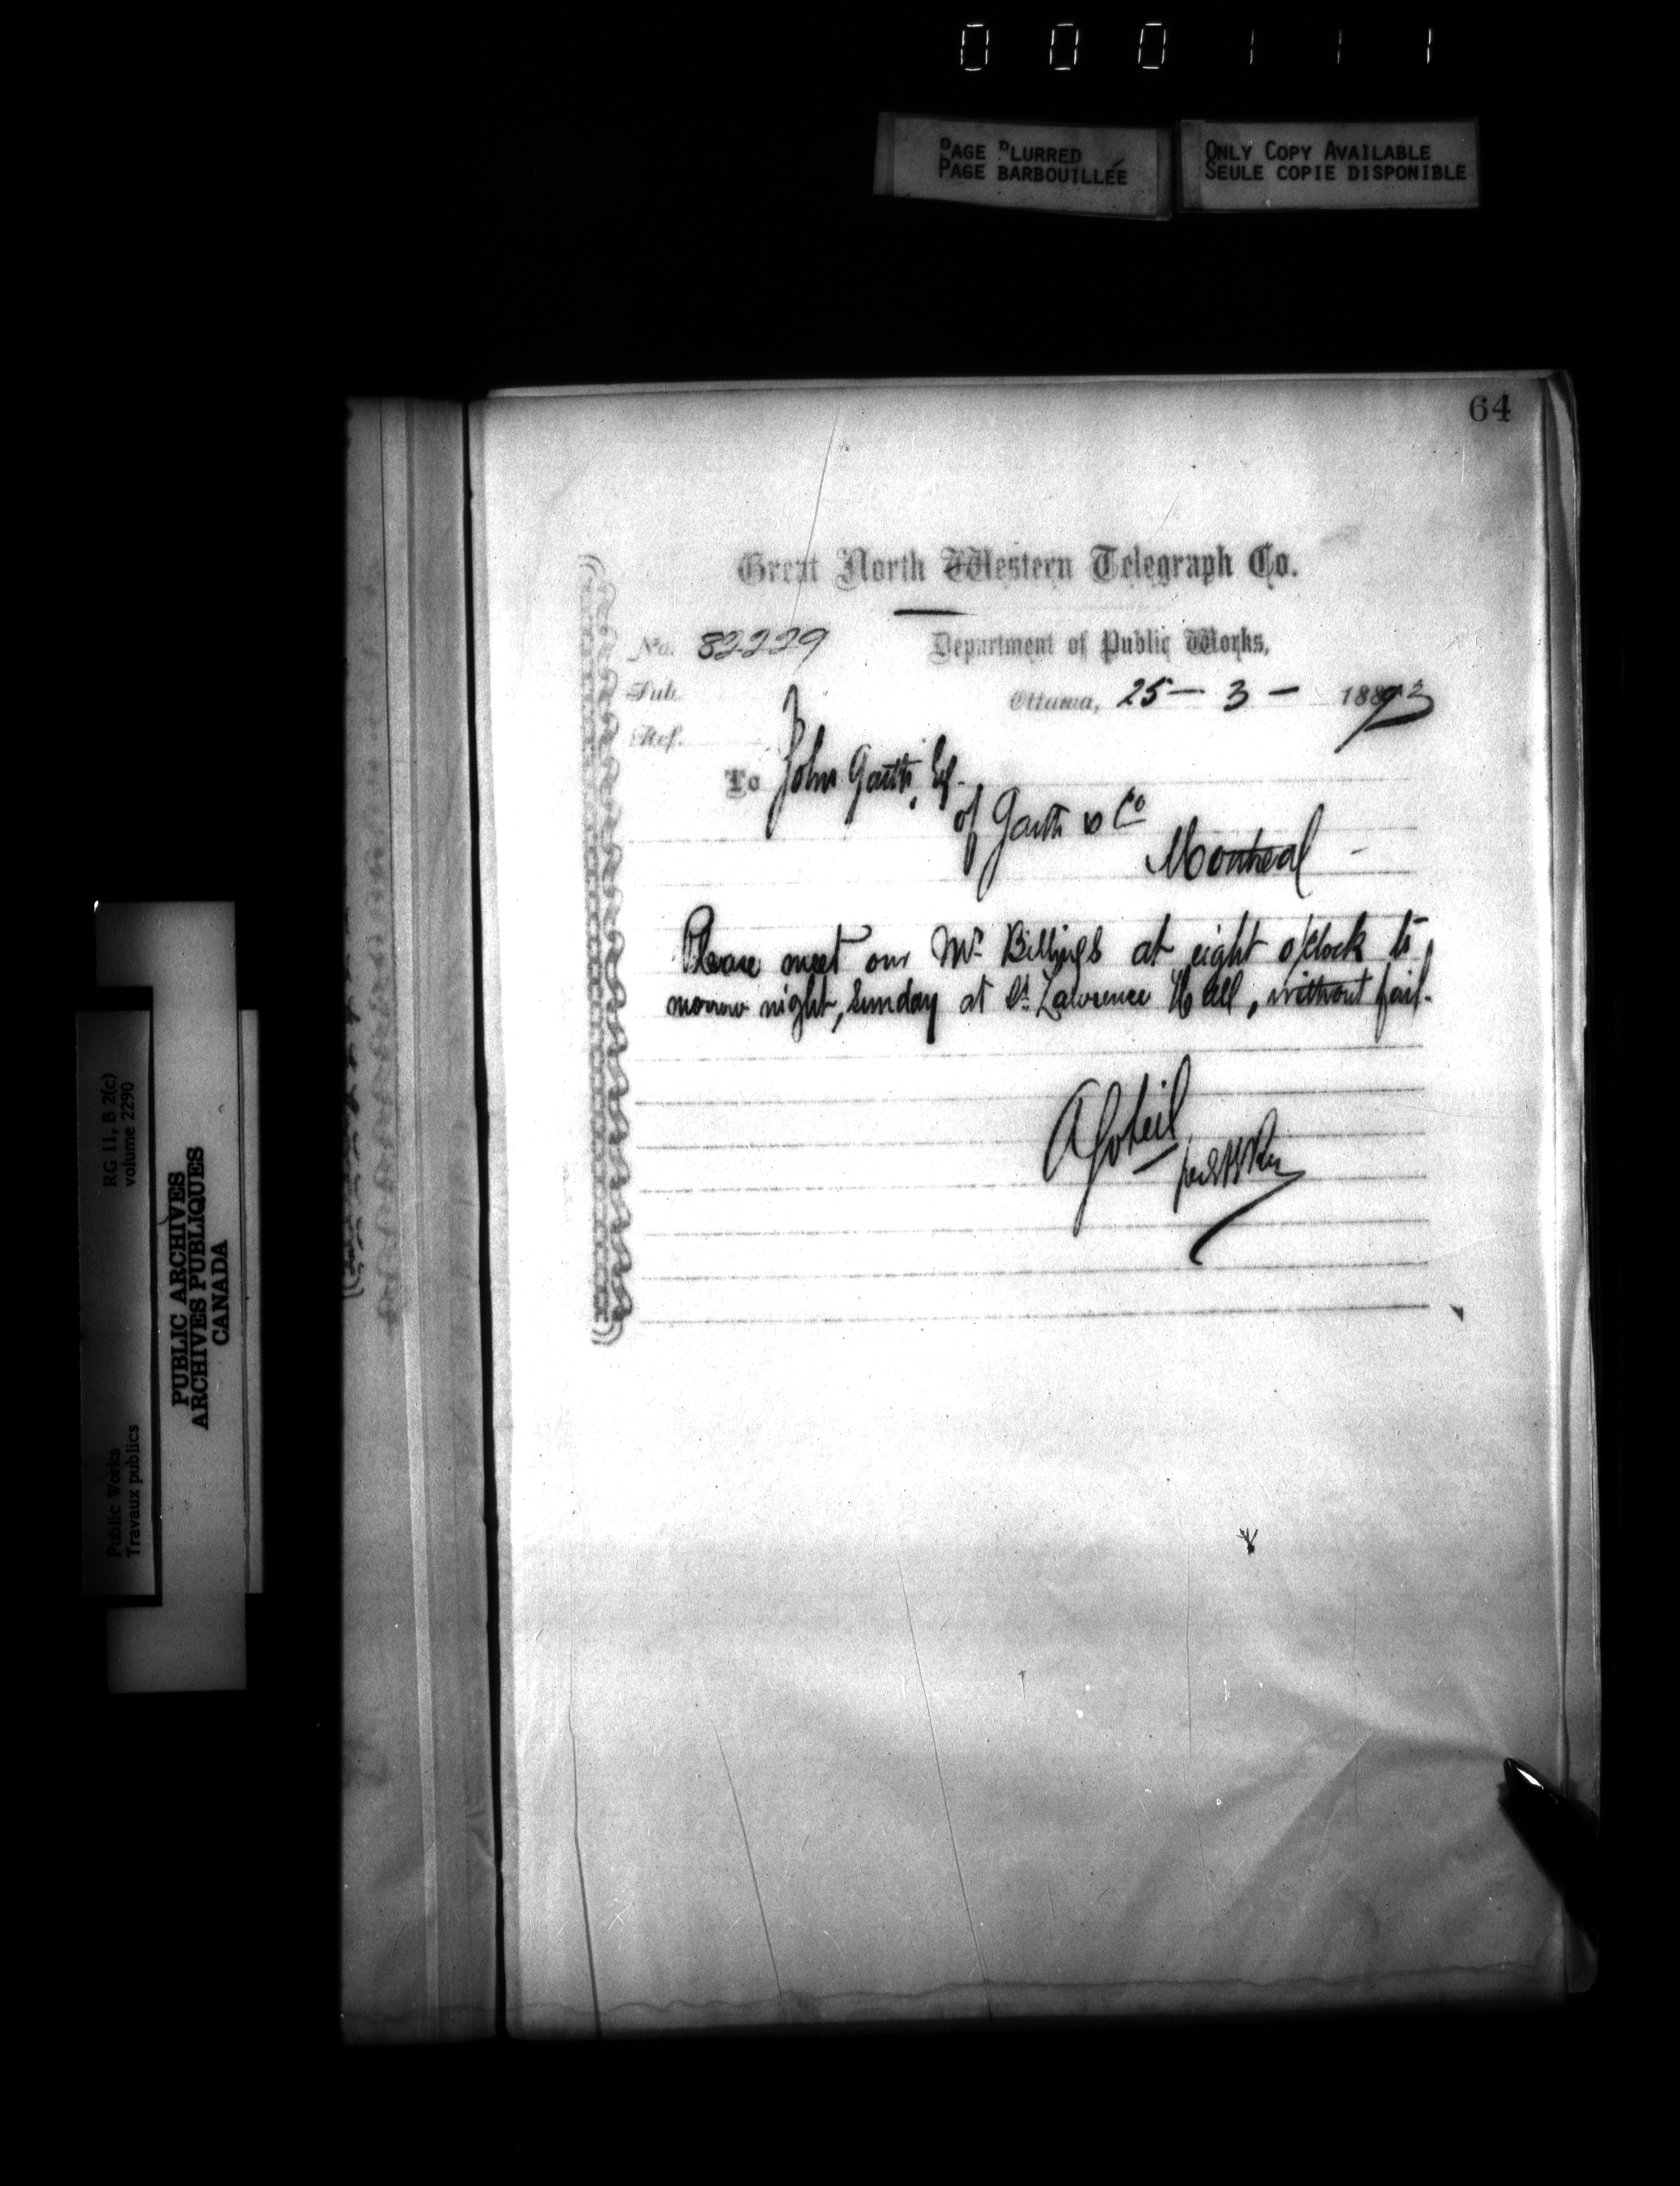 000111
PAGE BLURRED
PAGE BARBOUILLÉE
ONLY COPY AVAILABLE
SEULE COPIE DISPONIBLE
64
Great North Western Telegraph Co.
No. 82229
Department of Public Works,
Sub.
Ottawa, 25 — 3 — 1893
Ref.
To John Garth, Esq.
of Garth & Co
Montreal -
Please meet our Mr. Billings at eight o'clock to
morrow night, Sunday at St. Lawrence Hall, without fail.
A Gobeil
per
RG 11, B 2(c)
volume 2290
Public Works
Travaux publics
PUBLIC ARCHIVES
ARCHIVES PUBLIQUES
CANADA